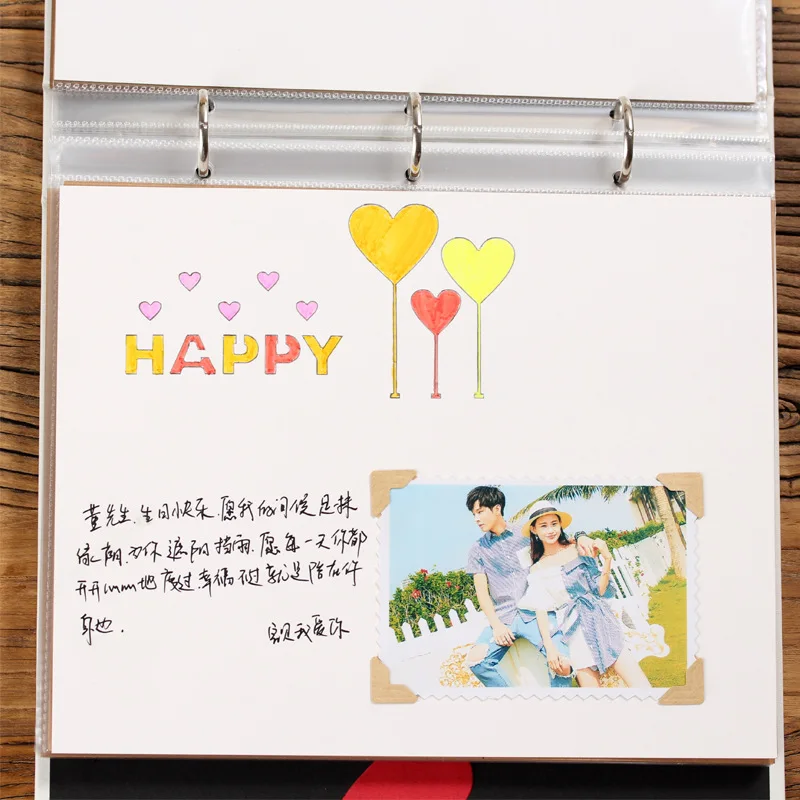 HAPPY
先生.生日快乐.愿我的问候是抹
为你遮阳挡雨.愿每一天你都
开开心心地度过.幸福不过就是陪在你
身边.
宝贝我爱你